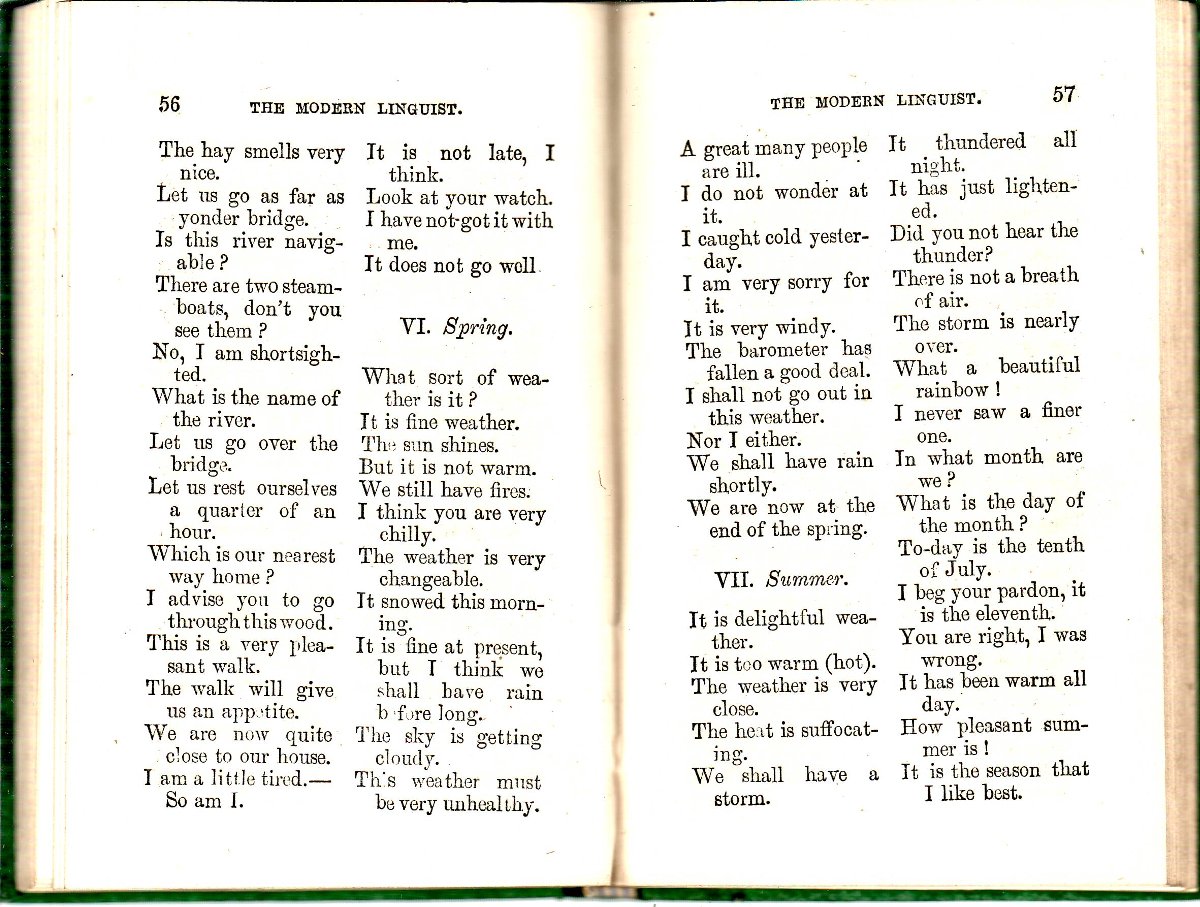 56
THE MODERN LINGUIST.
The hay smells very
nice.
Let us go as far as
yonder bridge.
Is this river navig-
able?
There are two steam-
boats, don't you
see them?
No, I am shortsigh-
ted.
What is the name of
the river.
Let us go over the
bridge.
Let us rest ourselves
a quarter of an
hour.
Which is our nearest
way home?
I advise you to go
through this wood.
This is a very plea-
sant walk.
The walk will give
us an appetite.
We are now quite
close to our house.
I am a little tired.—
So am I.
It is not late, I
think.
Look at your watch.
I have not got it with
me.
It does not go well
VI. Spring.
What sort of wea-
ther is it?
It is fine weather.
The sun shines.
But it is not warm.
We still have fires.
I think you are very
chilly.
The weather is very
changeable.
It snowed this morn-
ing.
It is fine at present,
but I think we
shall have rain
before long.
The sky is getting
cloudy.
This weather must
be very unhealthy.
THE MODERN LINGUIST.
57
A great many people
are ill.
I do not wonder at
it.
I caught cold yester-
day.
I am very sorry for
it.
It is very windy.
The barometer has
fallen a good deal.
I shall not go out in
this weather.
Nor I either.
We shall have rain
shortly.
We are now at the
end of the spring.
VII. Summer.
It is delightful wea-
ther.
It is too warm (hot).
The weather is very
close.
The heat is suffocat-
ing.
We shall have a
storm.
It thundered all
night.
It has just lighten-
ed.
Did you not hear the
thunder?
There is not a breath
of air.
The storm is nearly
over.
What a beautiful
rainbow!
I never saw a finer
one.
In what month are
we?
What is the day of
the month?
To-day is the tenth
of July.
I beg your pardon, it
is the eleventh.
You are right, I was
wrong.
It has been warm all
day.
How pleasant sum-
mer is!
It is the season that
I like best.